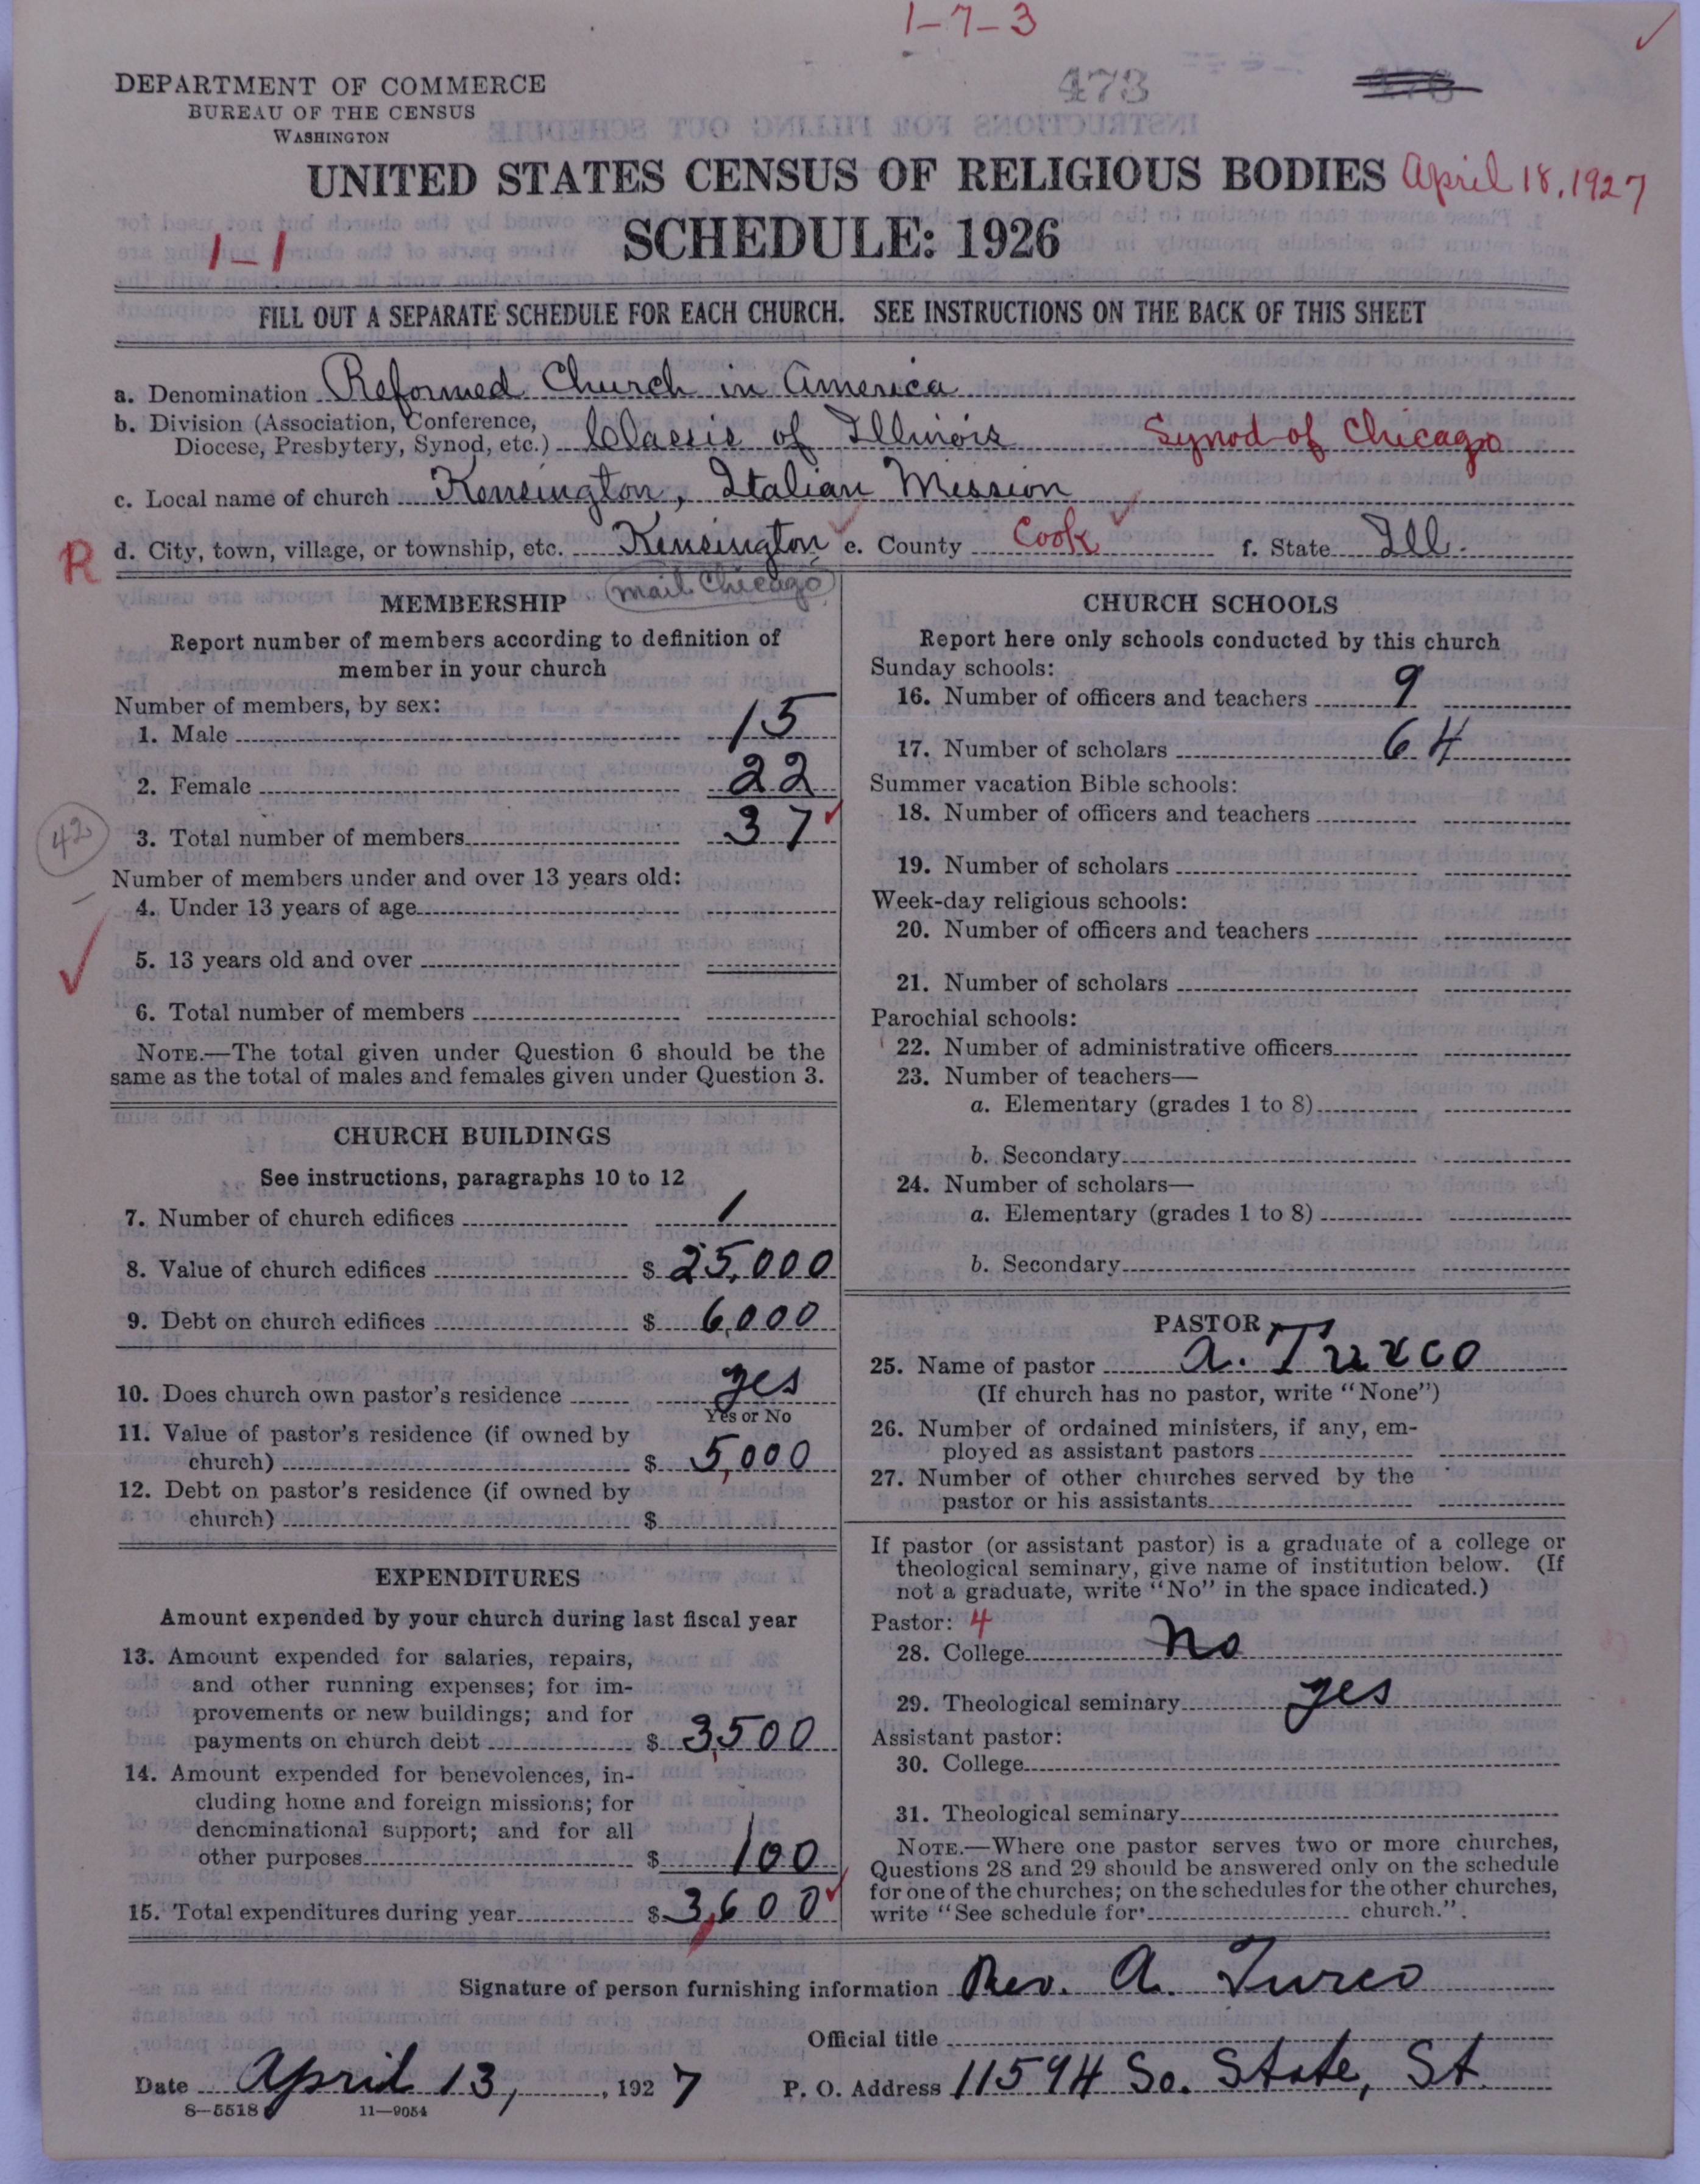 1-7-3
DEPARTMENT OF COMMERCE
BUREAU OF THE CENSUS
WASHINGTON
473
UNITED STATES CENSUS OF RELIGIOUS BODIES April 18, 1927
SCHEDULE: 1926
1-1
FILL OUT A SEPARATE SCHEDULE FOR EACH CHURCH. SEE INSTRUCTIONS ON THE BACK OF THIS SHEET
a. Denomination Reformed Church in America
b. Division (Association, Conference,
Diocese, Presbytery, Synod, etc.) Classis of Illinois Synod of Chicago
c. Local name of church Kensington, Italian Mission
R d. City, town, village, or township, etc. Kensington e. County Cook f. State Ill.
mail Chicago
MEMBERSHIP
Report number of members according to definition of
member in your church
Number of members, by sex:
1. Male 15
2. Female 22
42
3. Total number of members 37
Number of members under and over 13 years old:
4. Under 13 years of age
5. 13 years old and over
6. Total number of members
NOTE.—The total given under Question 6 should be the
same as the total of males and females given under Question 3.
CHURCH BUILDINGS
See instructions, paragraphs 10 to 12
7. Number of church edifices 1
8. Value of church edifices $ 25,000
9. Debt on church edifices $ 6,000
10. Does church own pastor's residence yes
Yes or No
11. Value of pastor's residence (if owned by
church) $ 5,000
12. Debt on pastor's residence (if owned by
church) $
EXPENDITURES
Amount expended by your church during last fiscal year
13. Amount expended for salaries, repairs,
and other running expenses; for im-
provements or new buildings; and for
payments on church debt $ 3,500
14. Amount expended for benevolences, in-
cluding home and foreign missions; for
denominational support; and for all
other purposes $ 100
15. Total expenditures during year $ 3,600
CHURCH SCHOOLS
Report here only schools conducted by this church
Sunday schools:
16. Number of officers and teachers 9
17. Number of scholars 64
Summer vacation Bible schools:
18. Number of officers and teachers
19. Number of scholars
Week-day religious schools:
20. Number of officers and teachers
21. Number of scholars
Parochial schools:
22. Number of administrative officers
23. Number of teachers—
a. Elementary (grades 1 to 8)
b. Secondary
24. Number of scholars—
a. Elementary (grades 1 to 8)
b. Secondary
PASTOR
25. Name of pastor A. Turco
(If church has no pastor, write "None")
26. Number of ordained ministers, if any, em-
ployed as assistant pastors
27. Number of other churches served by the
pastor or his assistants
If pastor (or assistant pastor) is a graduate of a college or
theological seminary, give name of institution below. (If
not a graduate, write "No" in the space indicated.)
Pastor: 4
28. College No
29. Theological seminary yes
Assistant pastor:
30. College
31. Theological seminary
NOTE.—Where one pastor serves two or more churches,
Questions 28 and 29 should be answered only on the schedule
for one of the churches; on the schedules for the other churches,
write "See schedule for church."
Signature of person furnishing information Rev. A. Turco
Official title
Date April 13, , 1927 P. O. Address 11594 So. State, St.
8-5518 11-9054